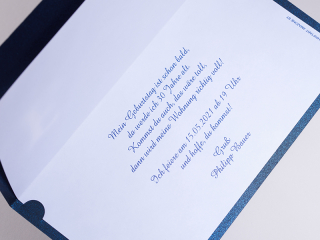 Mein Geburtstag ist schon bald,
da werde ich 30 Jahre alt.
Kommst du auch, das wäre toll,
dann wird meine Wohnung richtig voll!
Ich feiere am 15.05.2021 ab 19 Uhr
und hoffe, du kommst!
Gruß
Philipp Bauer